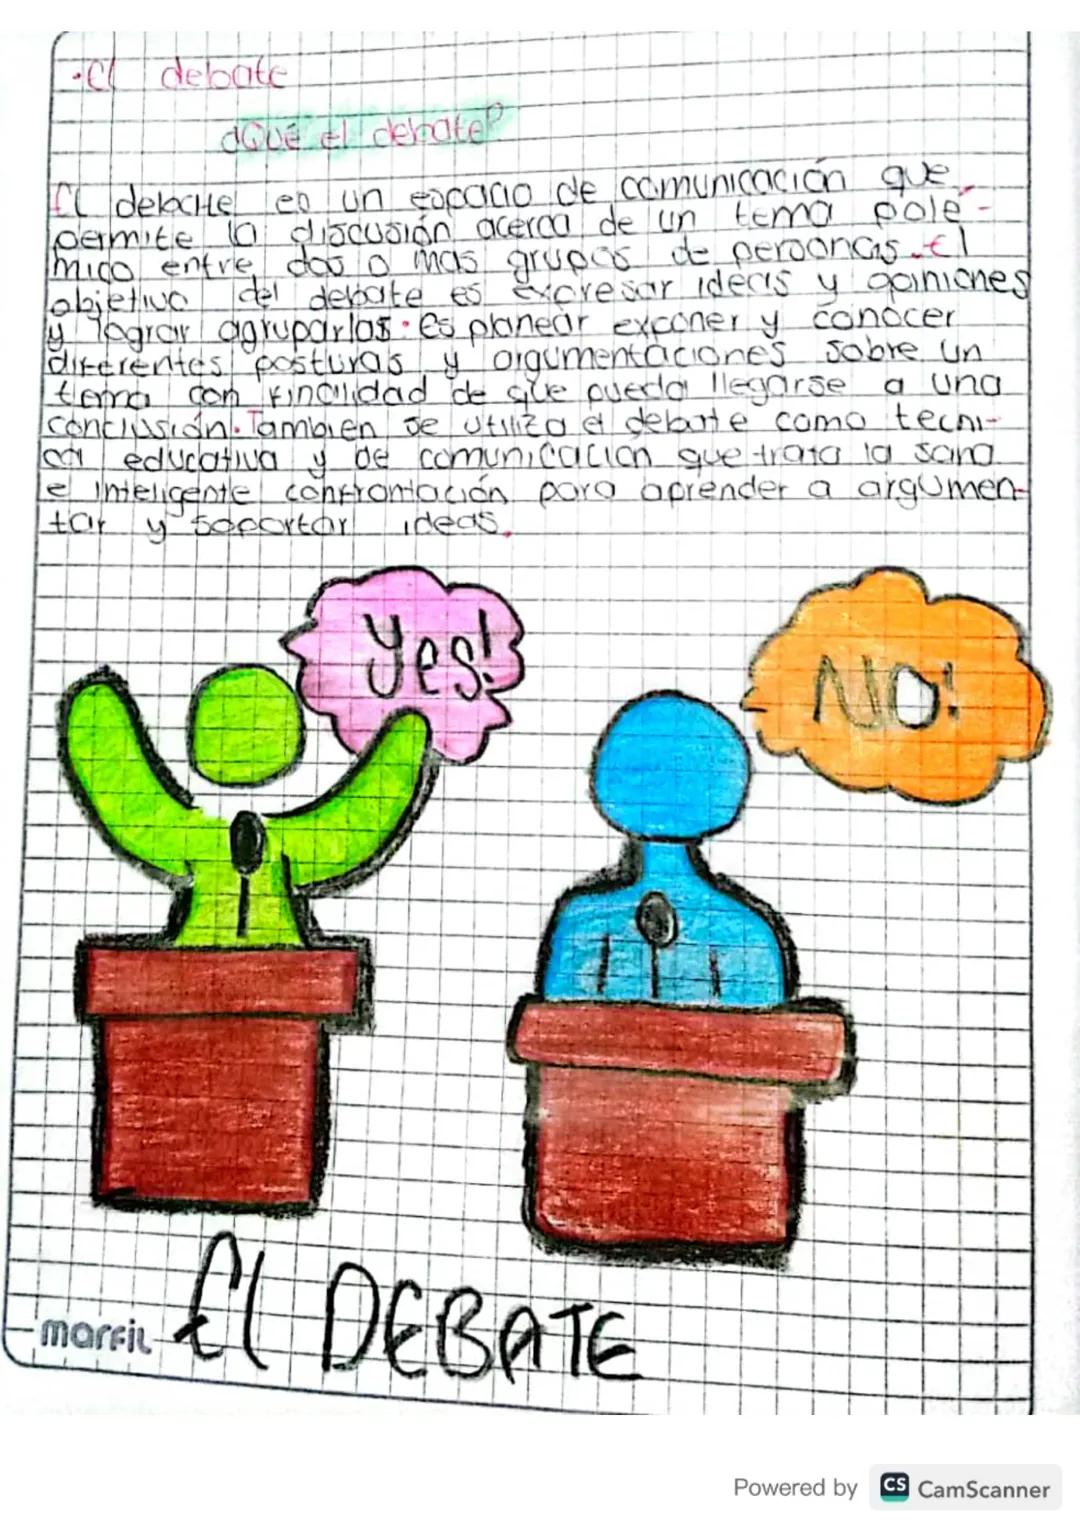 ·El debate
¿Qué el debate?
El debate es un espacio de comunicación que
permite la discusión acerca de un tema polé-
mico entre dos o mas grupos de personas. El
objetivo del debate es expresar ideas y opiniones
y lograr agruparlas. es planear exponer y conocer
diferentes posturas y argumentaciones sobre un
tema con finalidad de que pueda llegarse a una
conclusión. Tambien se utiliza el debate como tecni-
ca educativa y de comunicación que trata la sana
e inteligente confrontación para aprender a argumen-
tar y soportar ideas.
Yes!
NO!
El DEBATE
marfil
Powered by CS CamScanner